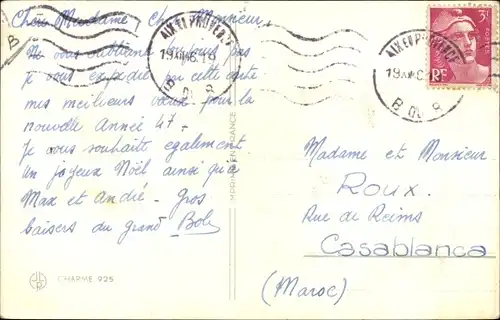 Chère Madame, Cher Monsieur,
Ne vous oubliant toujours pas
je vous expédie par cette carte
mes meilleurs vœux pour la
nouvelle Année 47.
Je vous souhaite également
un joyeux Noël ainsi qu'à
Max et André. Gros
baisers du grand Bob
AIX EN PROVENCE
B DU R
3F
POSTES
RF
AIX EN PROVENCE
B DU R
Madame et Monsieur
Roux.
Rue de Reims
Casablanca
(Maroc)
CHARME 925